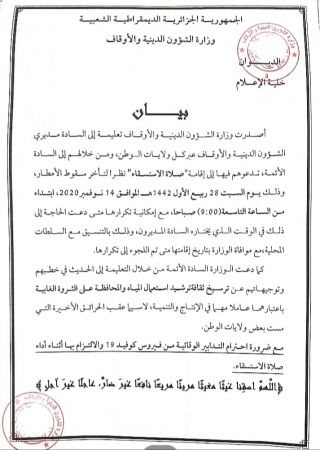 الجمهورية الجزائرية الديمقراطية الشعبية
وزارة الشؤون الدينية والأوقاف
الديوان
خلية الإعلام
بيان
أصدرت وزارة الشؤون الدينية والأوقاف تعليمة إلى السادة مديري
الشؤون الدينية والأوقاف عبر كل ولايات الوطن، ومن خلالهم إلى السادة
الأئمة، تدعوهم فيها إلى إقامة "صلاة الاستسقاء" نظرا لتأخر سقوط الأمطار،
وذلك يوم السبت 28 ربيع الأول 1442هـ الموافق 14 نوفمبر 2020، ابتداء
من الساعة التاسعة (9:00) صباحا، مع إمكانية تكرارها متى دعت الحاجة إلى
ذلك في الوقت الذي يختاره السادة المديرون، وذلك بالتنسيق مع السلطات
المحلية، مع موافاة الوزارة بتاريخ إقامتها متى تم اللجوء إلى تكرارها.
كما دعت الوزارة السادة الأئمة من خلال التعليمة إلى الحديث في خطبهم
وتوجيهاتهم عن ترسيخ ثقافة ترشيد استعمال المياه والمحافظة على الثروة الغابية
باعتبارهما عاملا مهما في الإنتاج والتنمية، لاسيما عقب الحرائق الأخيرة التي
مست بعض ولايات الوطن.
مع ضرورة احترام التدابير الوقائية من فيروس كوفيد 19 والالتزام بها أثناء أداء
صلاة الاستسقاء.
اللهم اسقنا غيثا مغيثا مريئا مريعا نافعا غير ضار، عاجلا غير آجل